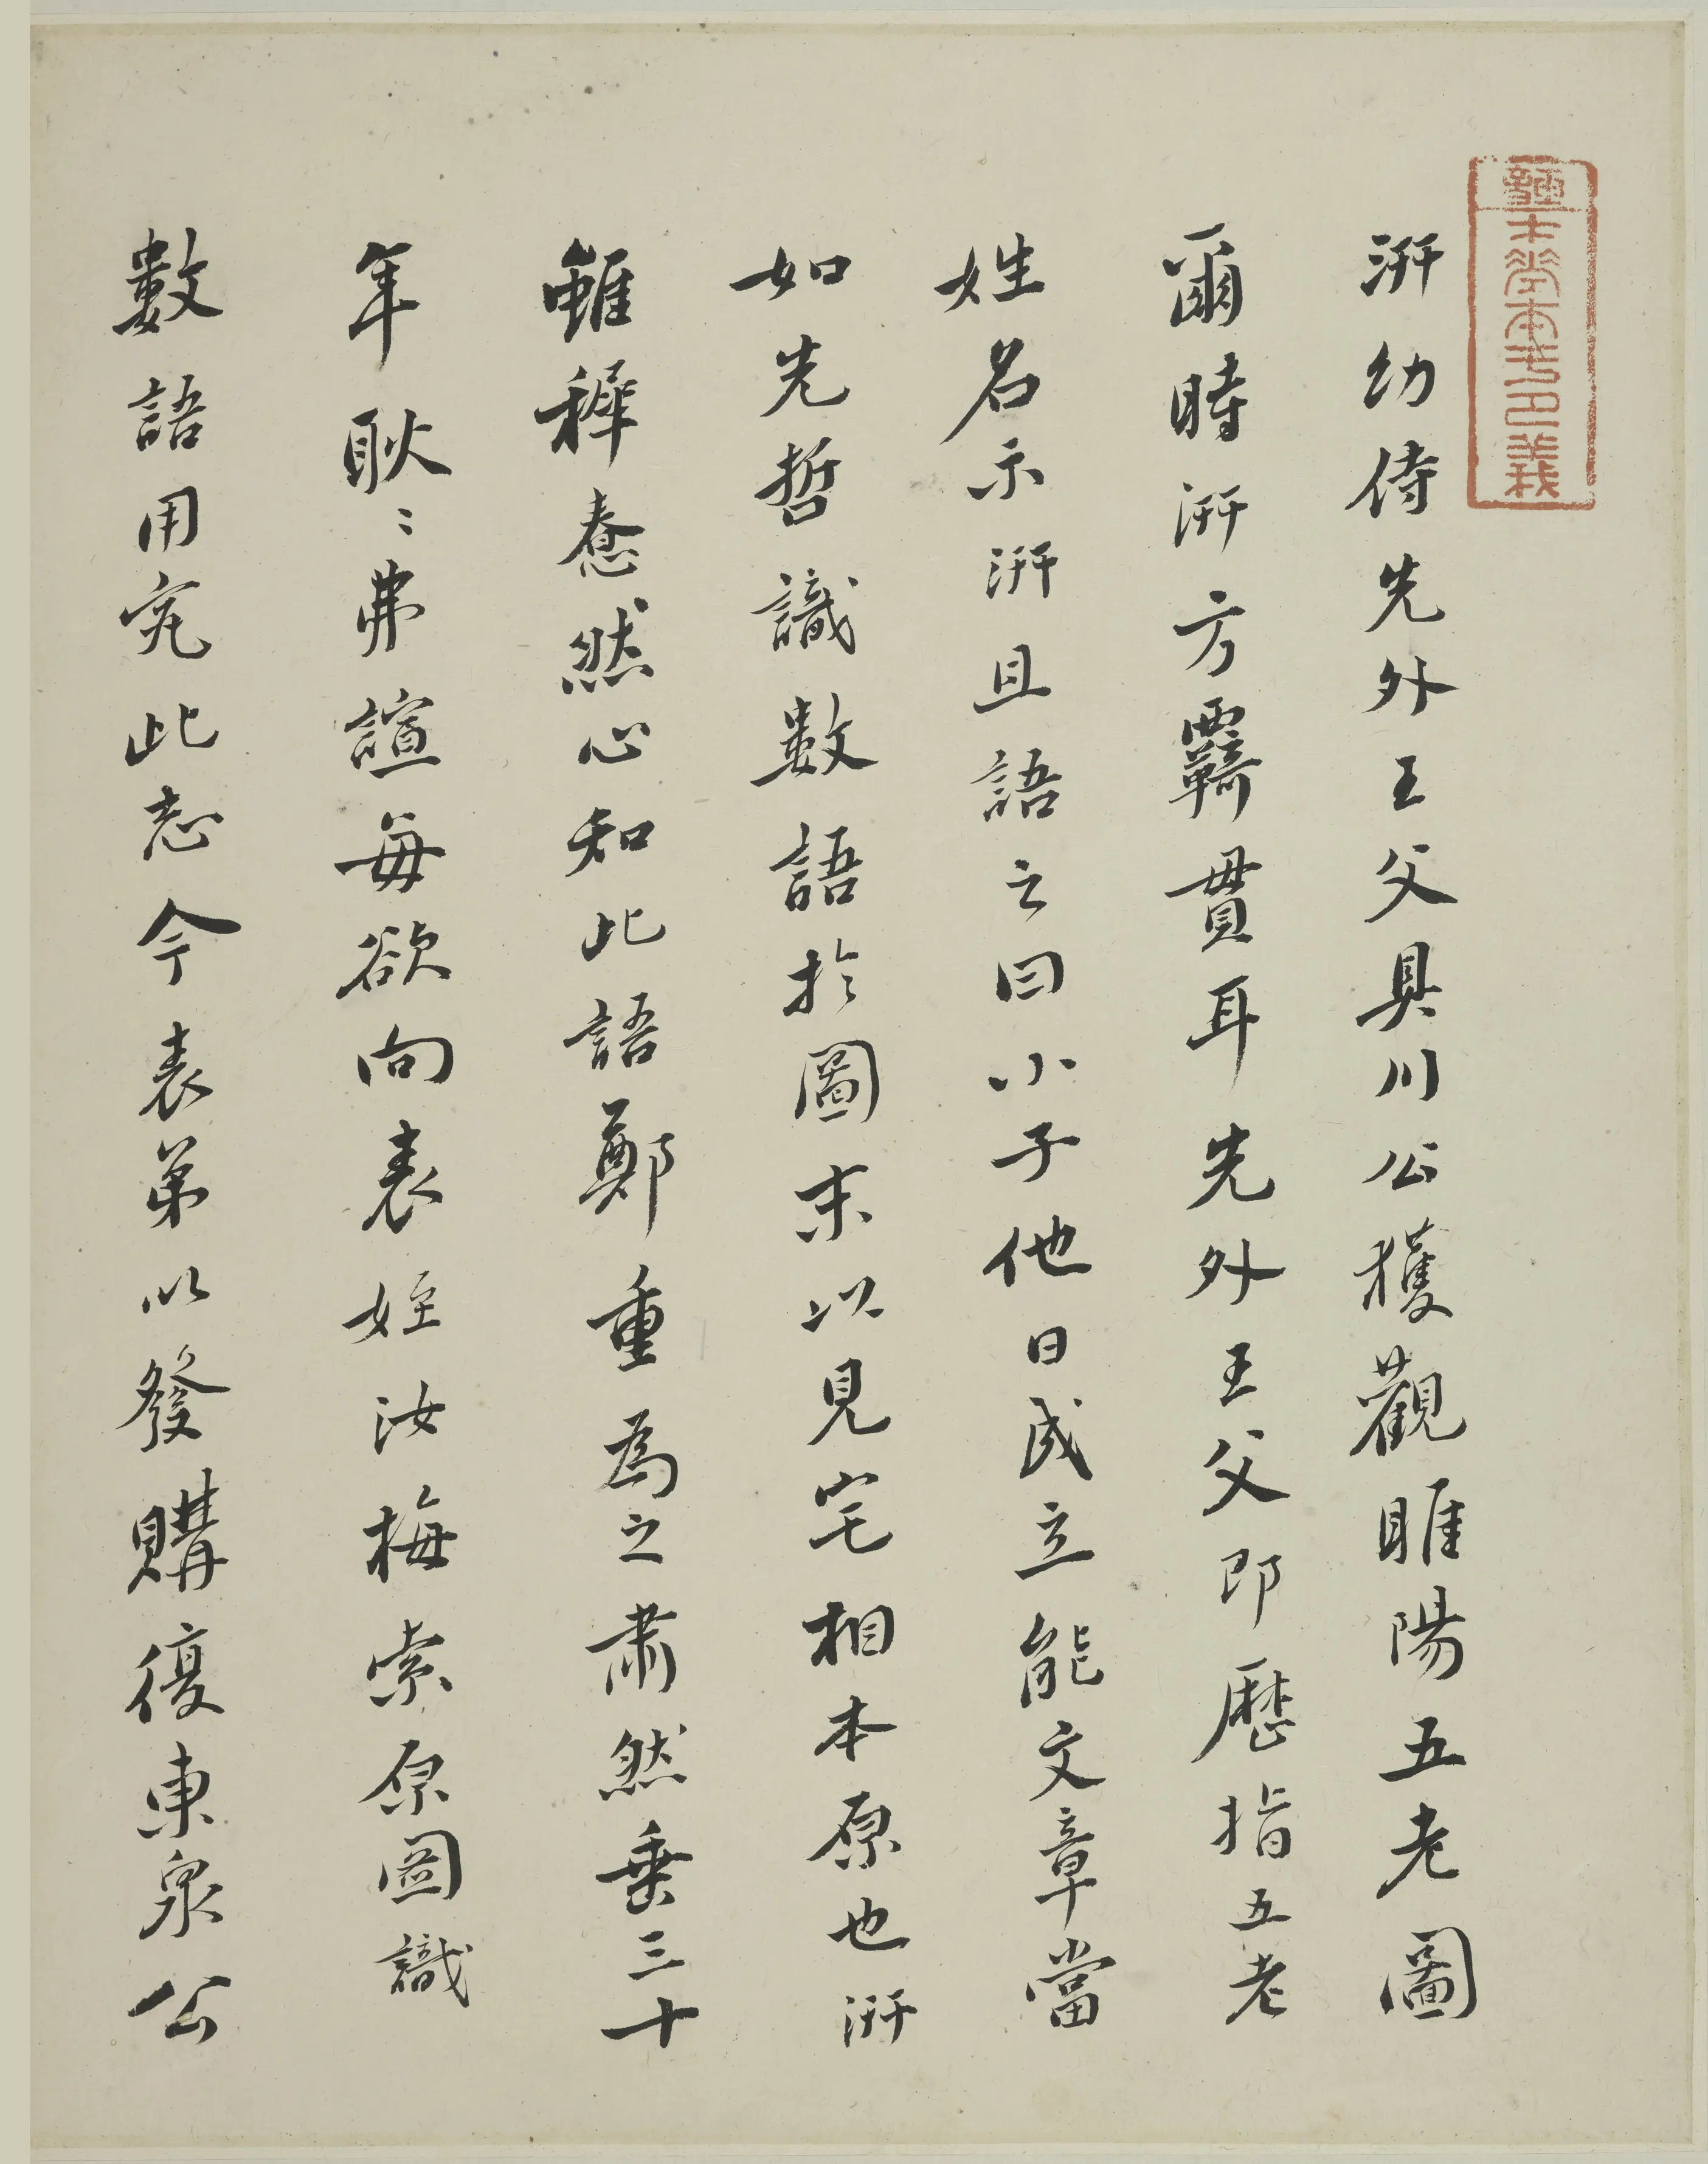 汧幼侍先外王父具川公獲觀睢陽五老圖
爾時汧方覊貫耳先外王父即歷指五老
姓名示汧且語之曰小子他日成立能文章當
如先哲識數語於圖末以見宅相本原也汧
雖穉惷然心知此語鄭重為之肅然垂三十
年耿〻弗諠每欲向表姪汝梅索原圖識
數語用完此志今表弟以發購復東泉公